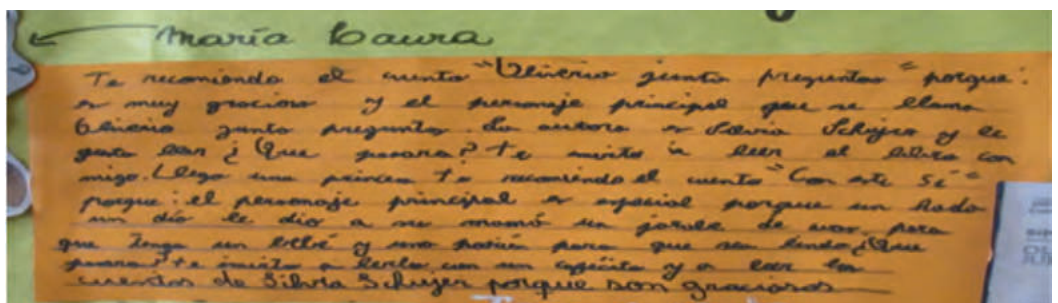 María Laura
Te recomiendo el cuento "Oliverio junta preguntas" porque:
es muy gracioso y el personaje principal que se llama
Oliverio junta preguntas. La autora es Silvia Schujer y le
gusta leer ¿Que pasara? Te invito a leer el libro con
migo. Llego una princesa te recomiendo el cuento "Con este sí"
porque: el personaje principal es especial porque un hada
un día le dio a su mamá un jarabe de uvas para
que tenga un bebé y una para que sea lindo ¿Que
pasara? te invito a leerlo con un cafecito y a leer los
cuentos de Silvia Schujer porque son graciosos